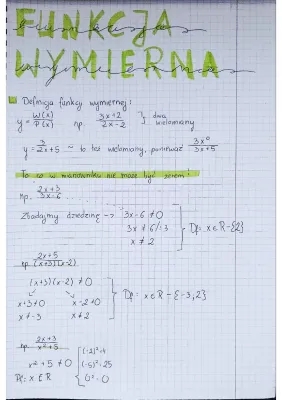 FUNKCJA
WYMIERNA
Definicja funkcji wymiernej:
y = W(x)/P(x) np. 3x+2/2x-2 } dwa wielomiany
y = 3/2x+5 ~ to też wielomiany, ponieważ 3x⁰/3x+5
To co w mianowniku nie może być zerem!
np. 2x+3/3x-6
Zbadajmy dziedzinę → 3x-6 ≠ 0
3x ≠ 6 /:3
x ≠ 2
Df: x∈R-{2}
np. 2x+5/(x+3)(x-2)
(x+3)(x-2) ≠ 0
x+3≠0 x-2≠0
x≠-3 x≠2
Df: x∈R-{-3,2}
np. 2x+3/x²+5
x²+5 ≠ 0
Df: x∈R
(-5)²=25
0²=0